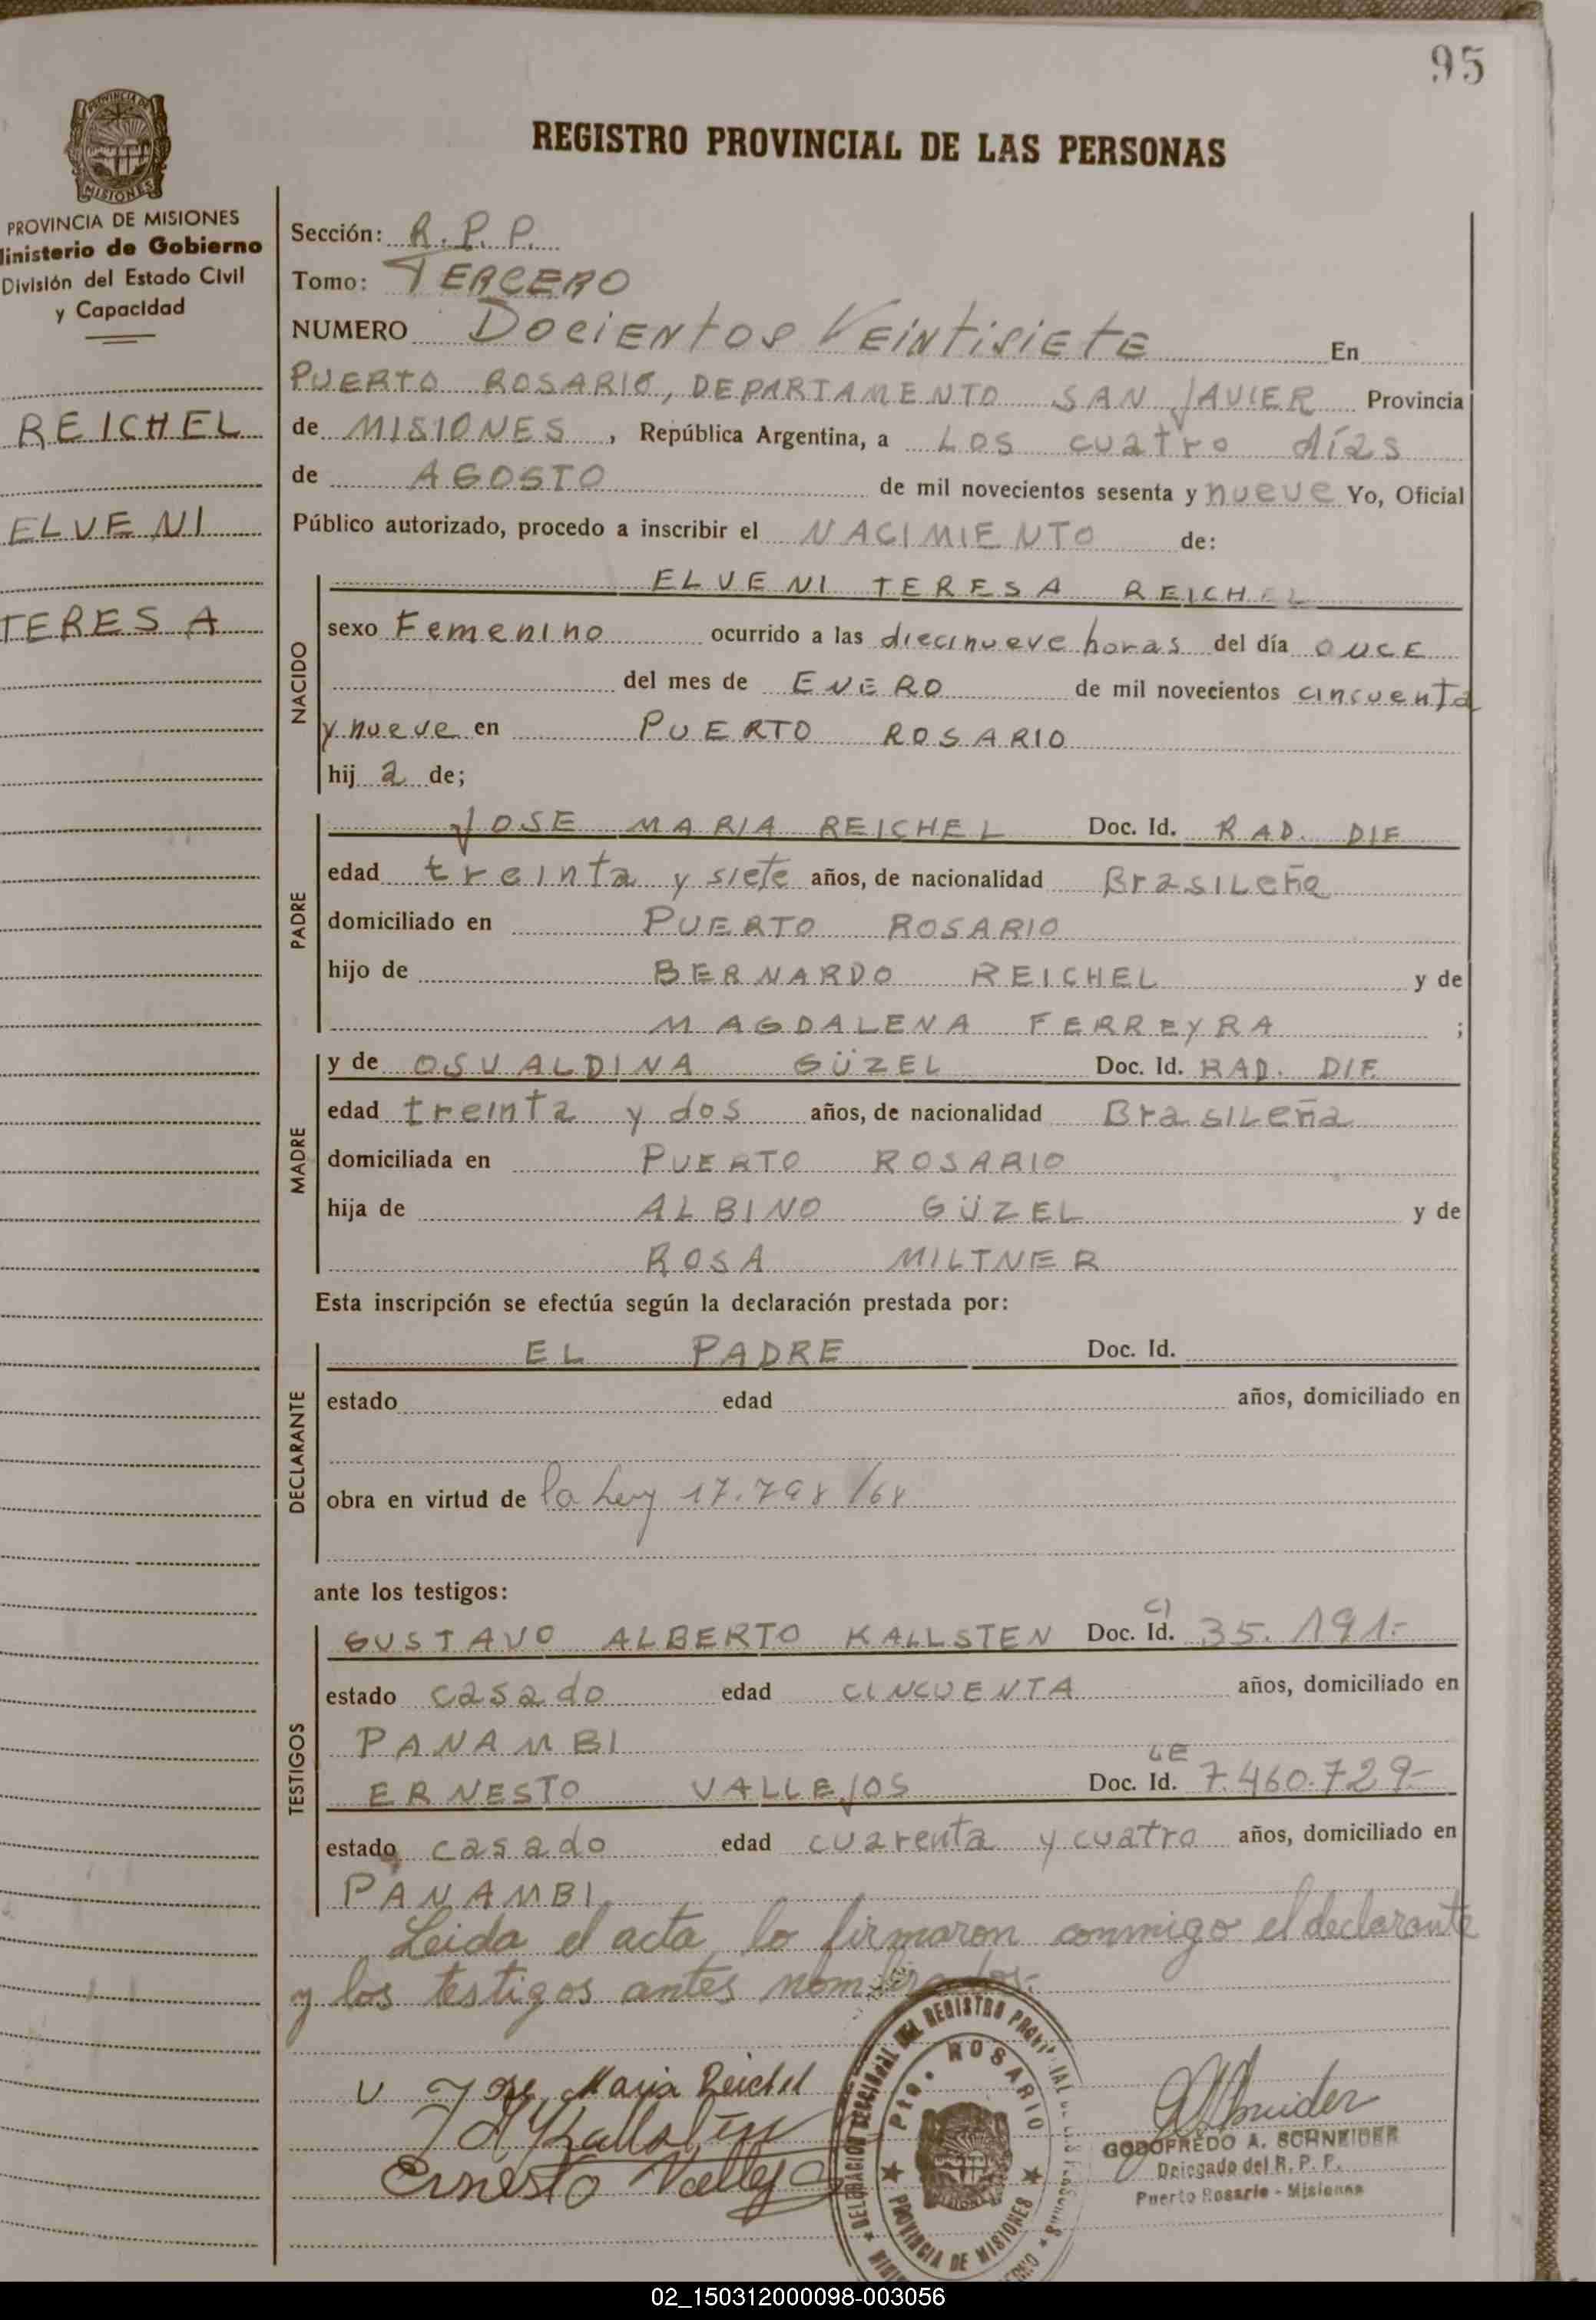 95
REGISTRO PROVINCIAL DE LAS PERSONAS
PROVINCIA DE MISIONES
PROVINCIA DE MISIONES
Ministerio de Gobierno
División del Estado Civil
y Capacidad
REICHEL
ELVENI
TERESA
Sección: R.P.P.
Tomo: TERCERO
NUMERO DOCIENTOS VEINTISIETE En
PUERTO ROSARIO, DEPARTAMENTO SAN JAVIER Provincia
de MISIONES, República Argentina, a LOS cuatro días
de AGOSTO de mil novecientos sesenta y nueve Yo, Oficial
Público autorizado, procedo a inscribir el NACIMIENTO de:
NACIDO
ELVENI TERESA REICHEL
sexo Femenino ocurrido a las diecinueve horas del día ONCE
del mes de ENERO de mil novecientos cincuenta
y nueve en PUERTO ROSARIO
hij a de;
PADRE
JOSE MARIA REICHEL Doc. Id. RAD. DIF
edad treinta y siete años, de nacionalidad Brasileña
domiciliado en PUERTO ROSARIO
hijo de BERNARDO REICHEL y de
MAGDALENA FERREYRA ;
MADRE
y de OSVALDINA GÜZEL Doc. Id. RAD. DIF.
edad treinta y dos años, de nacionalidad Brasileña
domiciliada en PUERTO ROSARIO
hija de ALBINO GÜZEL y de
ROSA MILTNER
Esta inscripción se efectúa según la declaración prestada por:
DECLARANTE
EL PADRE Doc. Id.
estado edad años, domiciliado en
obra en virtud de la Ley 17.798/68
ante los testigos:
TESTIGOS
GUSTAVO ALBERTO KALLSTEN Doc. Id. CI 35.191.-
estado casado edad CINCUENTA años, domiciliado en
PANAMBI
ERNESTO VALLEJOS Doc. Id. LE 7.460.729-
estado casado edad cuarenta y cuatro años, domiciliado en
PANAMBI.
Leida el acta, lo firmaron conmigo el declarante
y los testigos antes nombrados.-
Jose Maria Reichel
Ernesto Vallejos
DELEGACION SECCIONAL DEL REGISTRO PROVINCIAL DE LAS PERSONAS
Pto. ROSARIO
PROVINCIA DE MISIONES
GODOFREDO A. SCHNEIDER
Delegado del R. P. P.
Puerto Rosario - Misiones
02_150312000098-003056